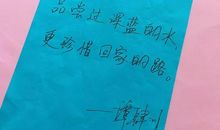 品尝过深蓝的水，
更珍惜回家的路。